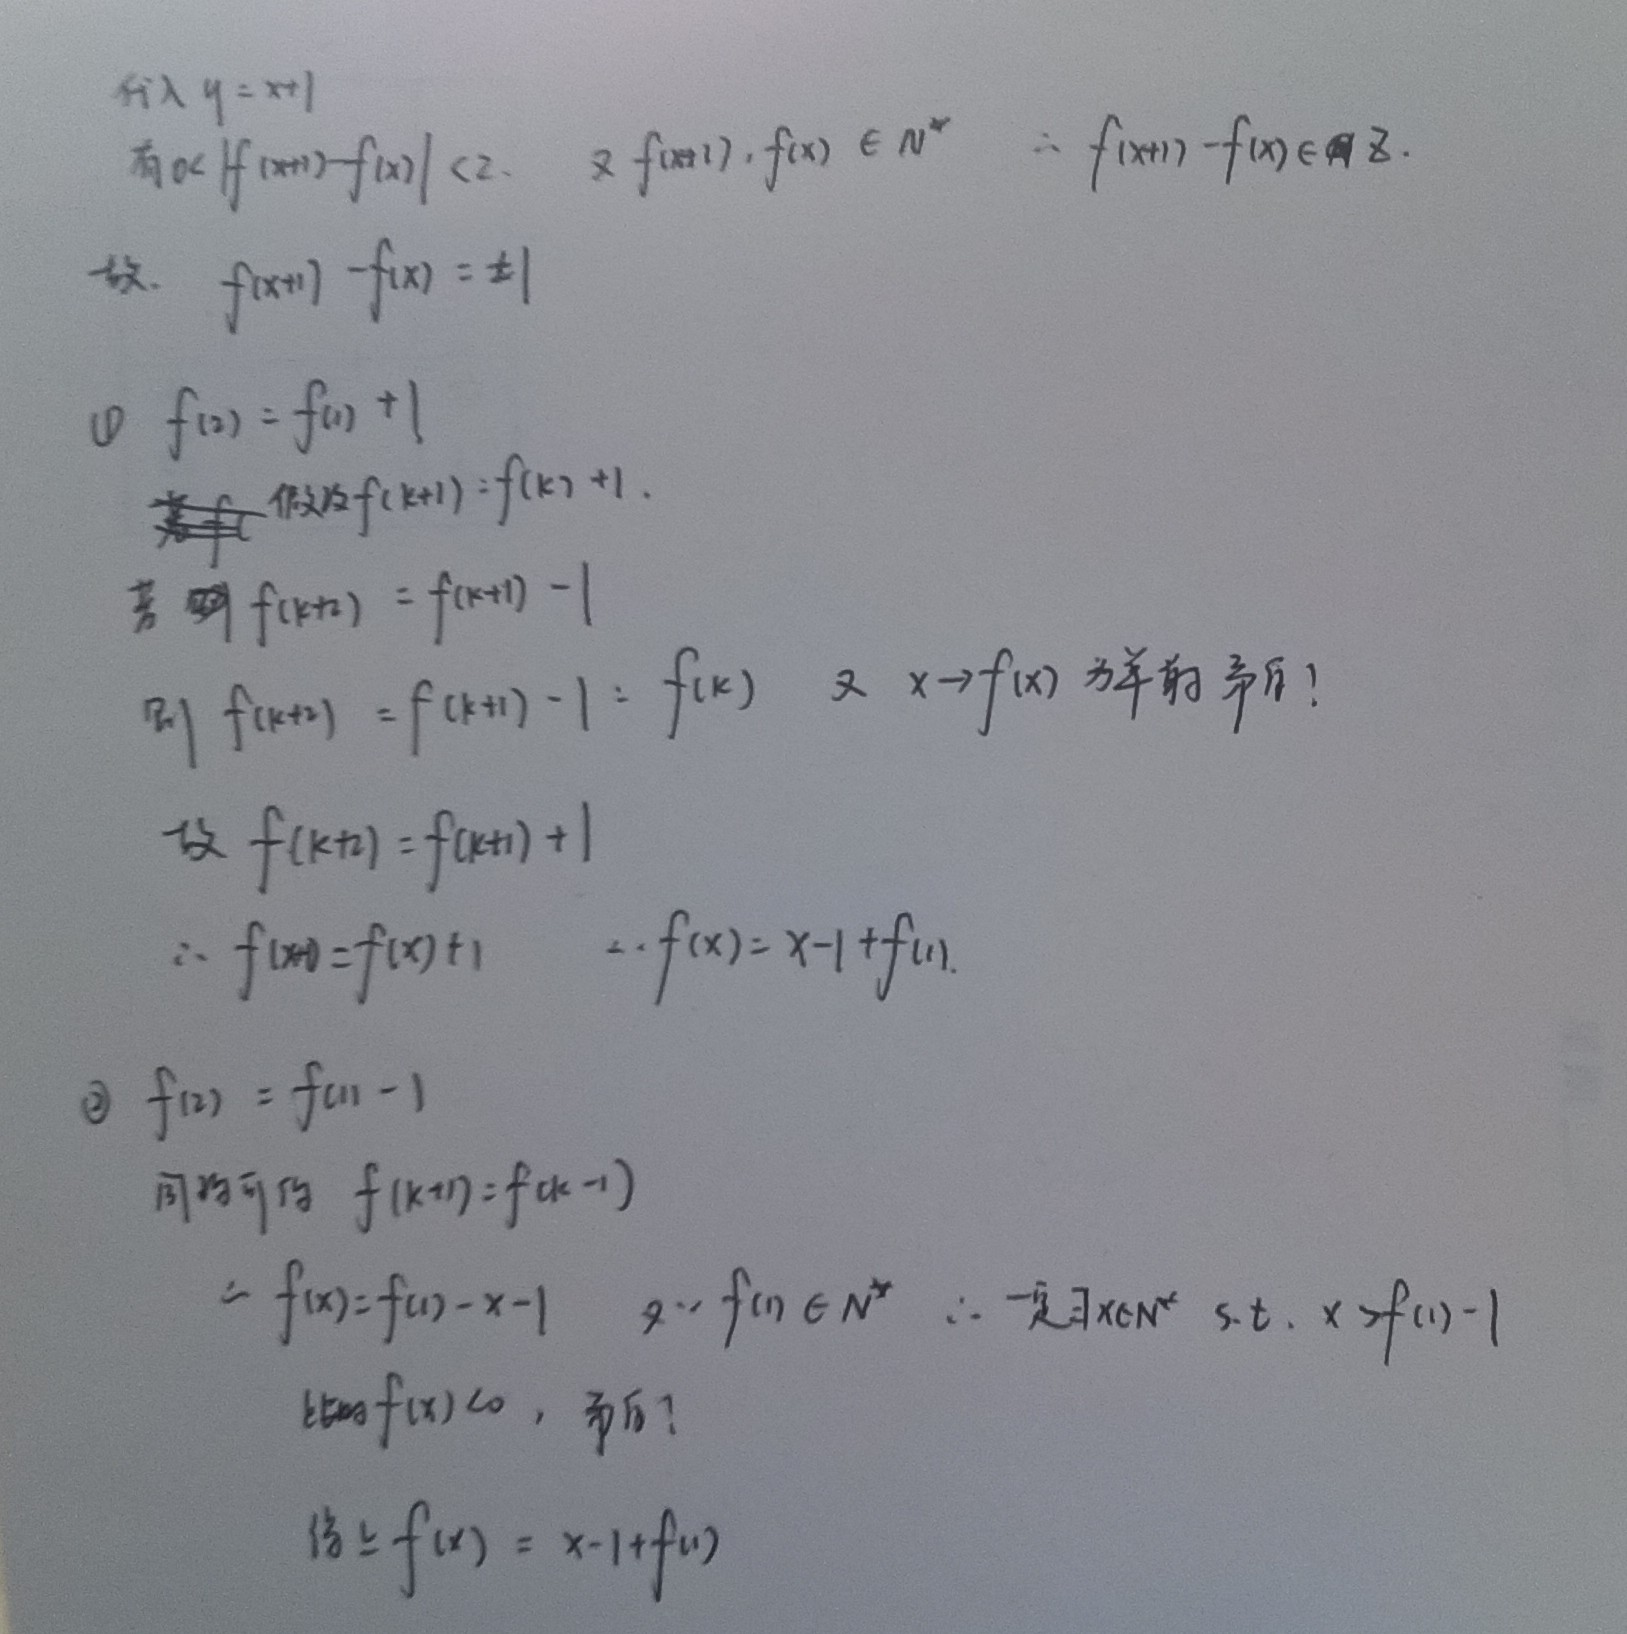 代入 y = x+1
有 0<|f(x+1)-f(x)|<2. 又 f(x+1), f(x) ∈ N* ∴ f(x+1) -f(x) ∈ Z.
故. f(x+1) -f(x) = ±1
① f(2) = f(1) +1
假设 f(k+1) = f(k) +1.
若 f(k+2) = f(k+1) -1
则 f(k+2) = f(k+1) -1 = f(k) 又 x→f(x) 为单射 矛盾!
故 f(k+2) = f(k+1) +1
∴ f(x+1) = f(x)+1 ∴ f(x) = x-1+f(1).
② f(2) = f(1) -1
同理可得 f(k+1) = f(k-1)
∴ f(x) = f(1) -x-1 又∵ f(1) ∈ N* ∴ 一定∃x∈N* s.t. x>f(1) -1
此时 f(x)<0, 矛盾!
综上 f(x) = x-1+f(1)